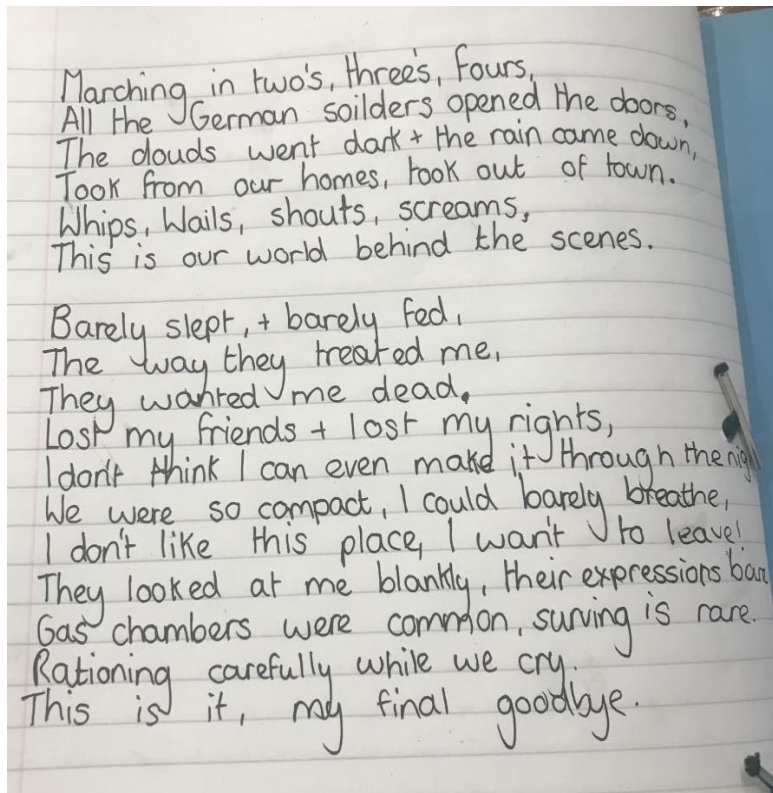 Marching in two's, three's, fours,
All the German soilders opened the doors,
The clouds went dark + the rain came down,
Took from our homes, took out of town.
Whips, Wails, shouts, screams,
This is our world behind the scenes.
Barely slept, + barely fed,
The way they treated me,
They wanted me dead,
Lost my friends + lost my rights,
I don't think I can even make it through the
We were so compact, I could barely breathe,
I don't like this place, I want to leave!
They looked at me blankly, their expressions
Gas chambers were common, surving is rare.
Rationing carefully while we cry.
This is it, my final goodbye.